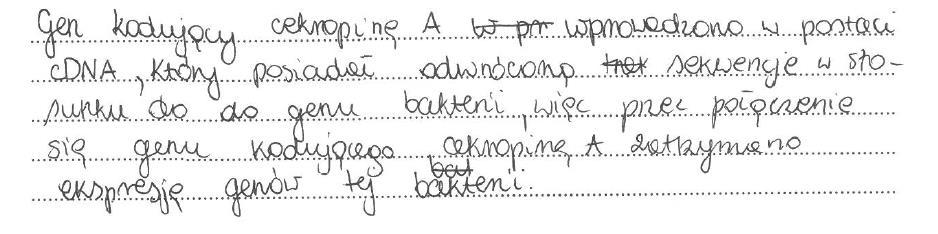 Gen kodujący cekropinę A wprowadzono w postaci
cDNA, który posiadał odwróconą sekwencję w sto-
sunku do do genu bakterii, więc przez połączenie
się genu kodującego cekropinę A zatrzymano
ekspresję genów tej bakterii.